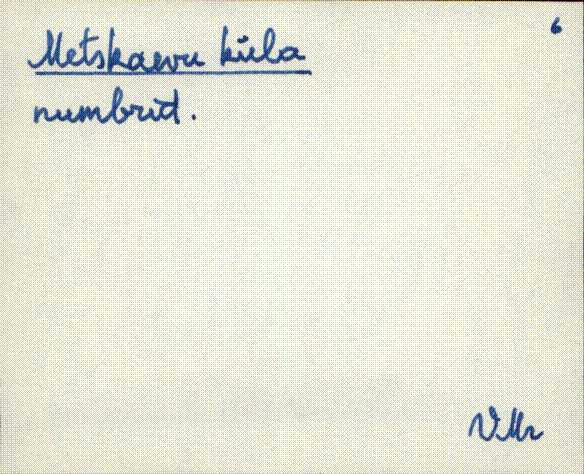 6
Metskaevu küla
numbrid.
VMr